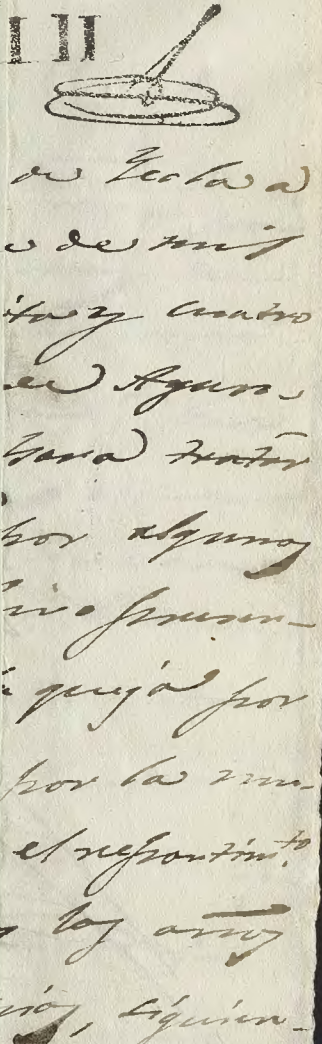 de Yecla a
de mil
ta y cuatro
Ayun-
para tratar
por algunos
presen-
queja por
por la mu-
el repartimto.
los años
siguien-